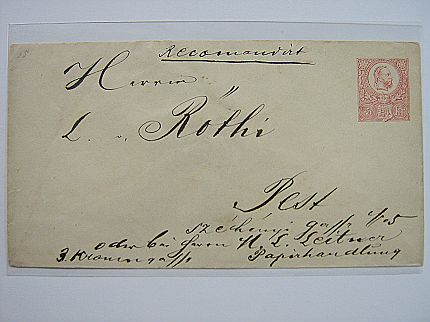 Recomandirt
Herrn
L. v. Röthi
Pest
Széchényi gasse
oder bei Herrn H. L. Leitner
3. Kronengasse Papierhandlung